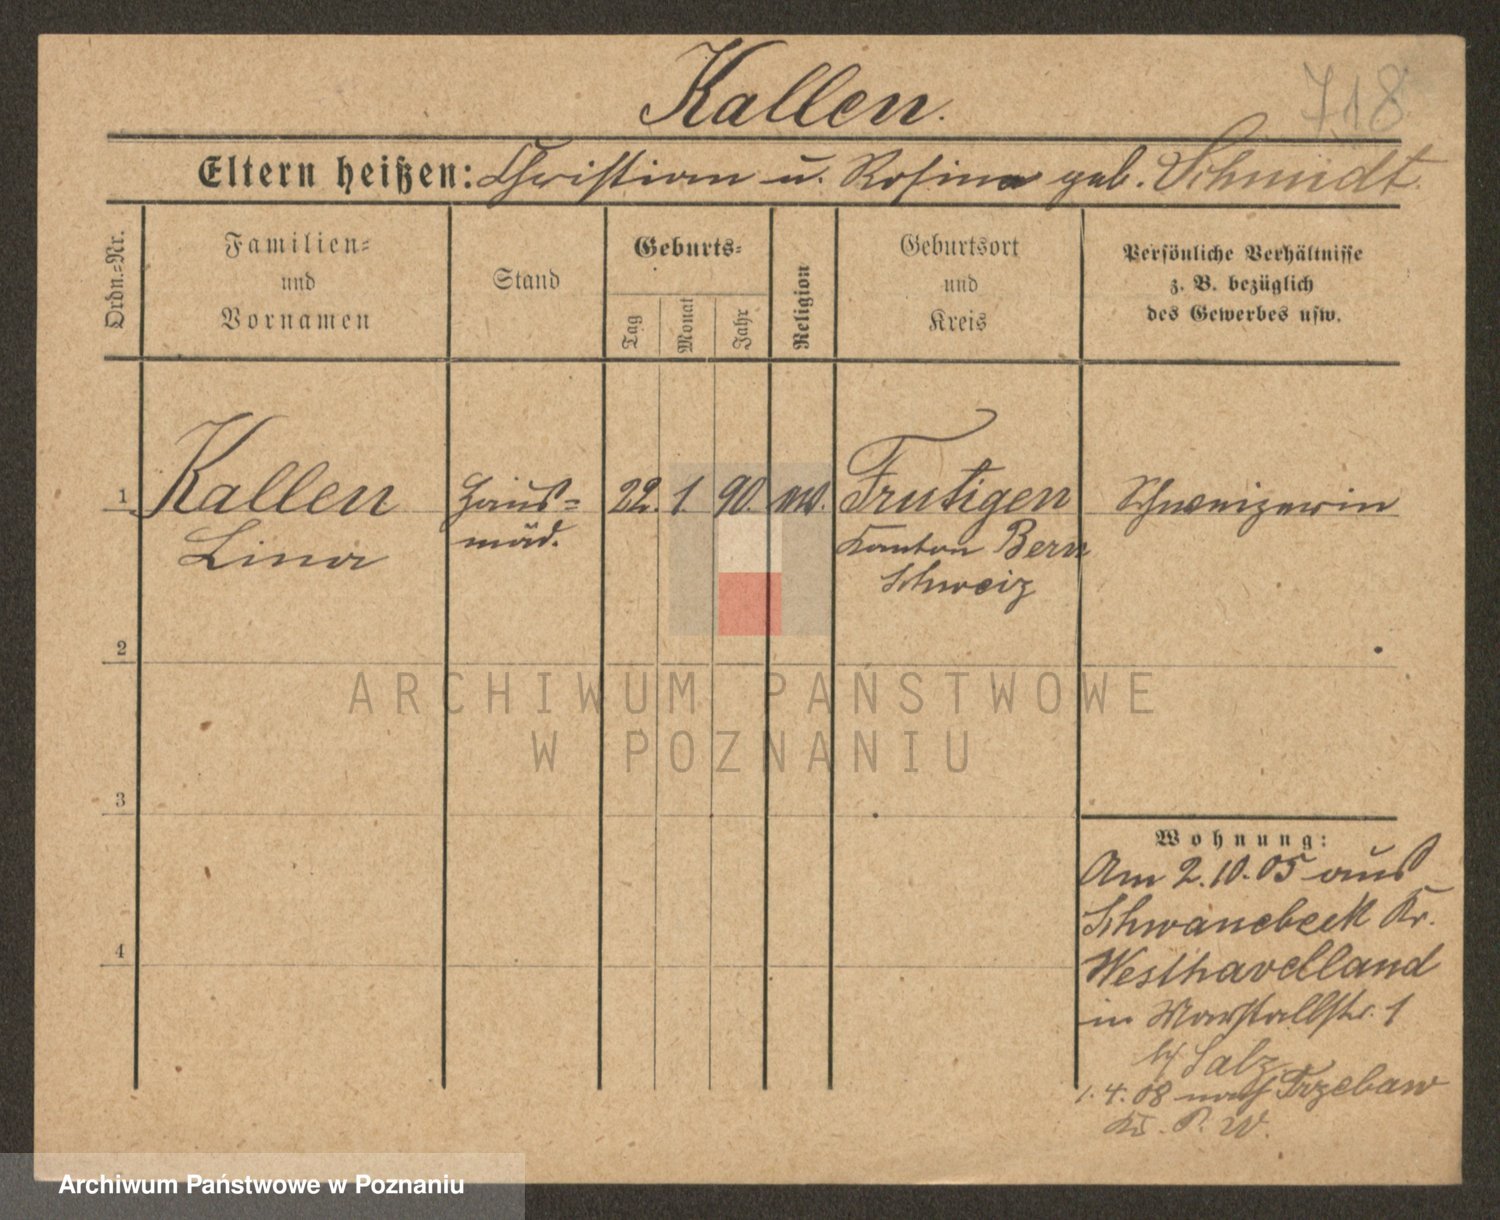 Kallen.
718
Eltern heißen: Christian u. Rosina geb. Schmidt.
Ordn.=Nr.
Familien=
und
Vornamen
Stand
Geburts=
Tag
Monat
Jahr
Religion
Geburtsort
und
Kreis
Persönliche Verhältnisse
z. B. bezüglich
des Gewerbes usw.
1 Kallen Haus= 22. 1 90. ew. Frutigen Schweizerin
Lina mäd. Kanton Bern
Schweiz
2
ARCHIWUM PAŃSTWOWE
W POZNANIU
3
Wohnung:
Am 2.10.05 aus
Schwanebeck Kr.
Westhavelland
4
in Marstallstr. 1
bei Salz
1.4.08 nach Trzebaw
Kr. P. W.
Archiwum Państwowe w Poznaniu